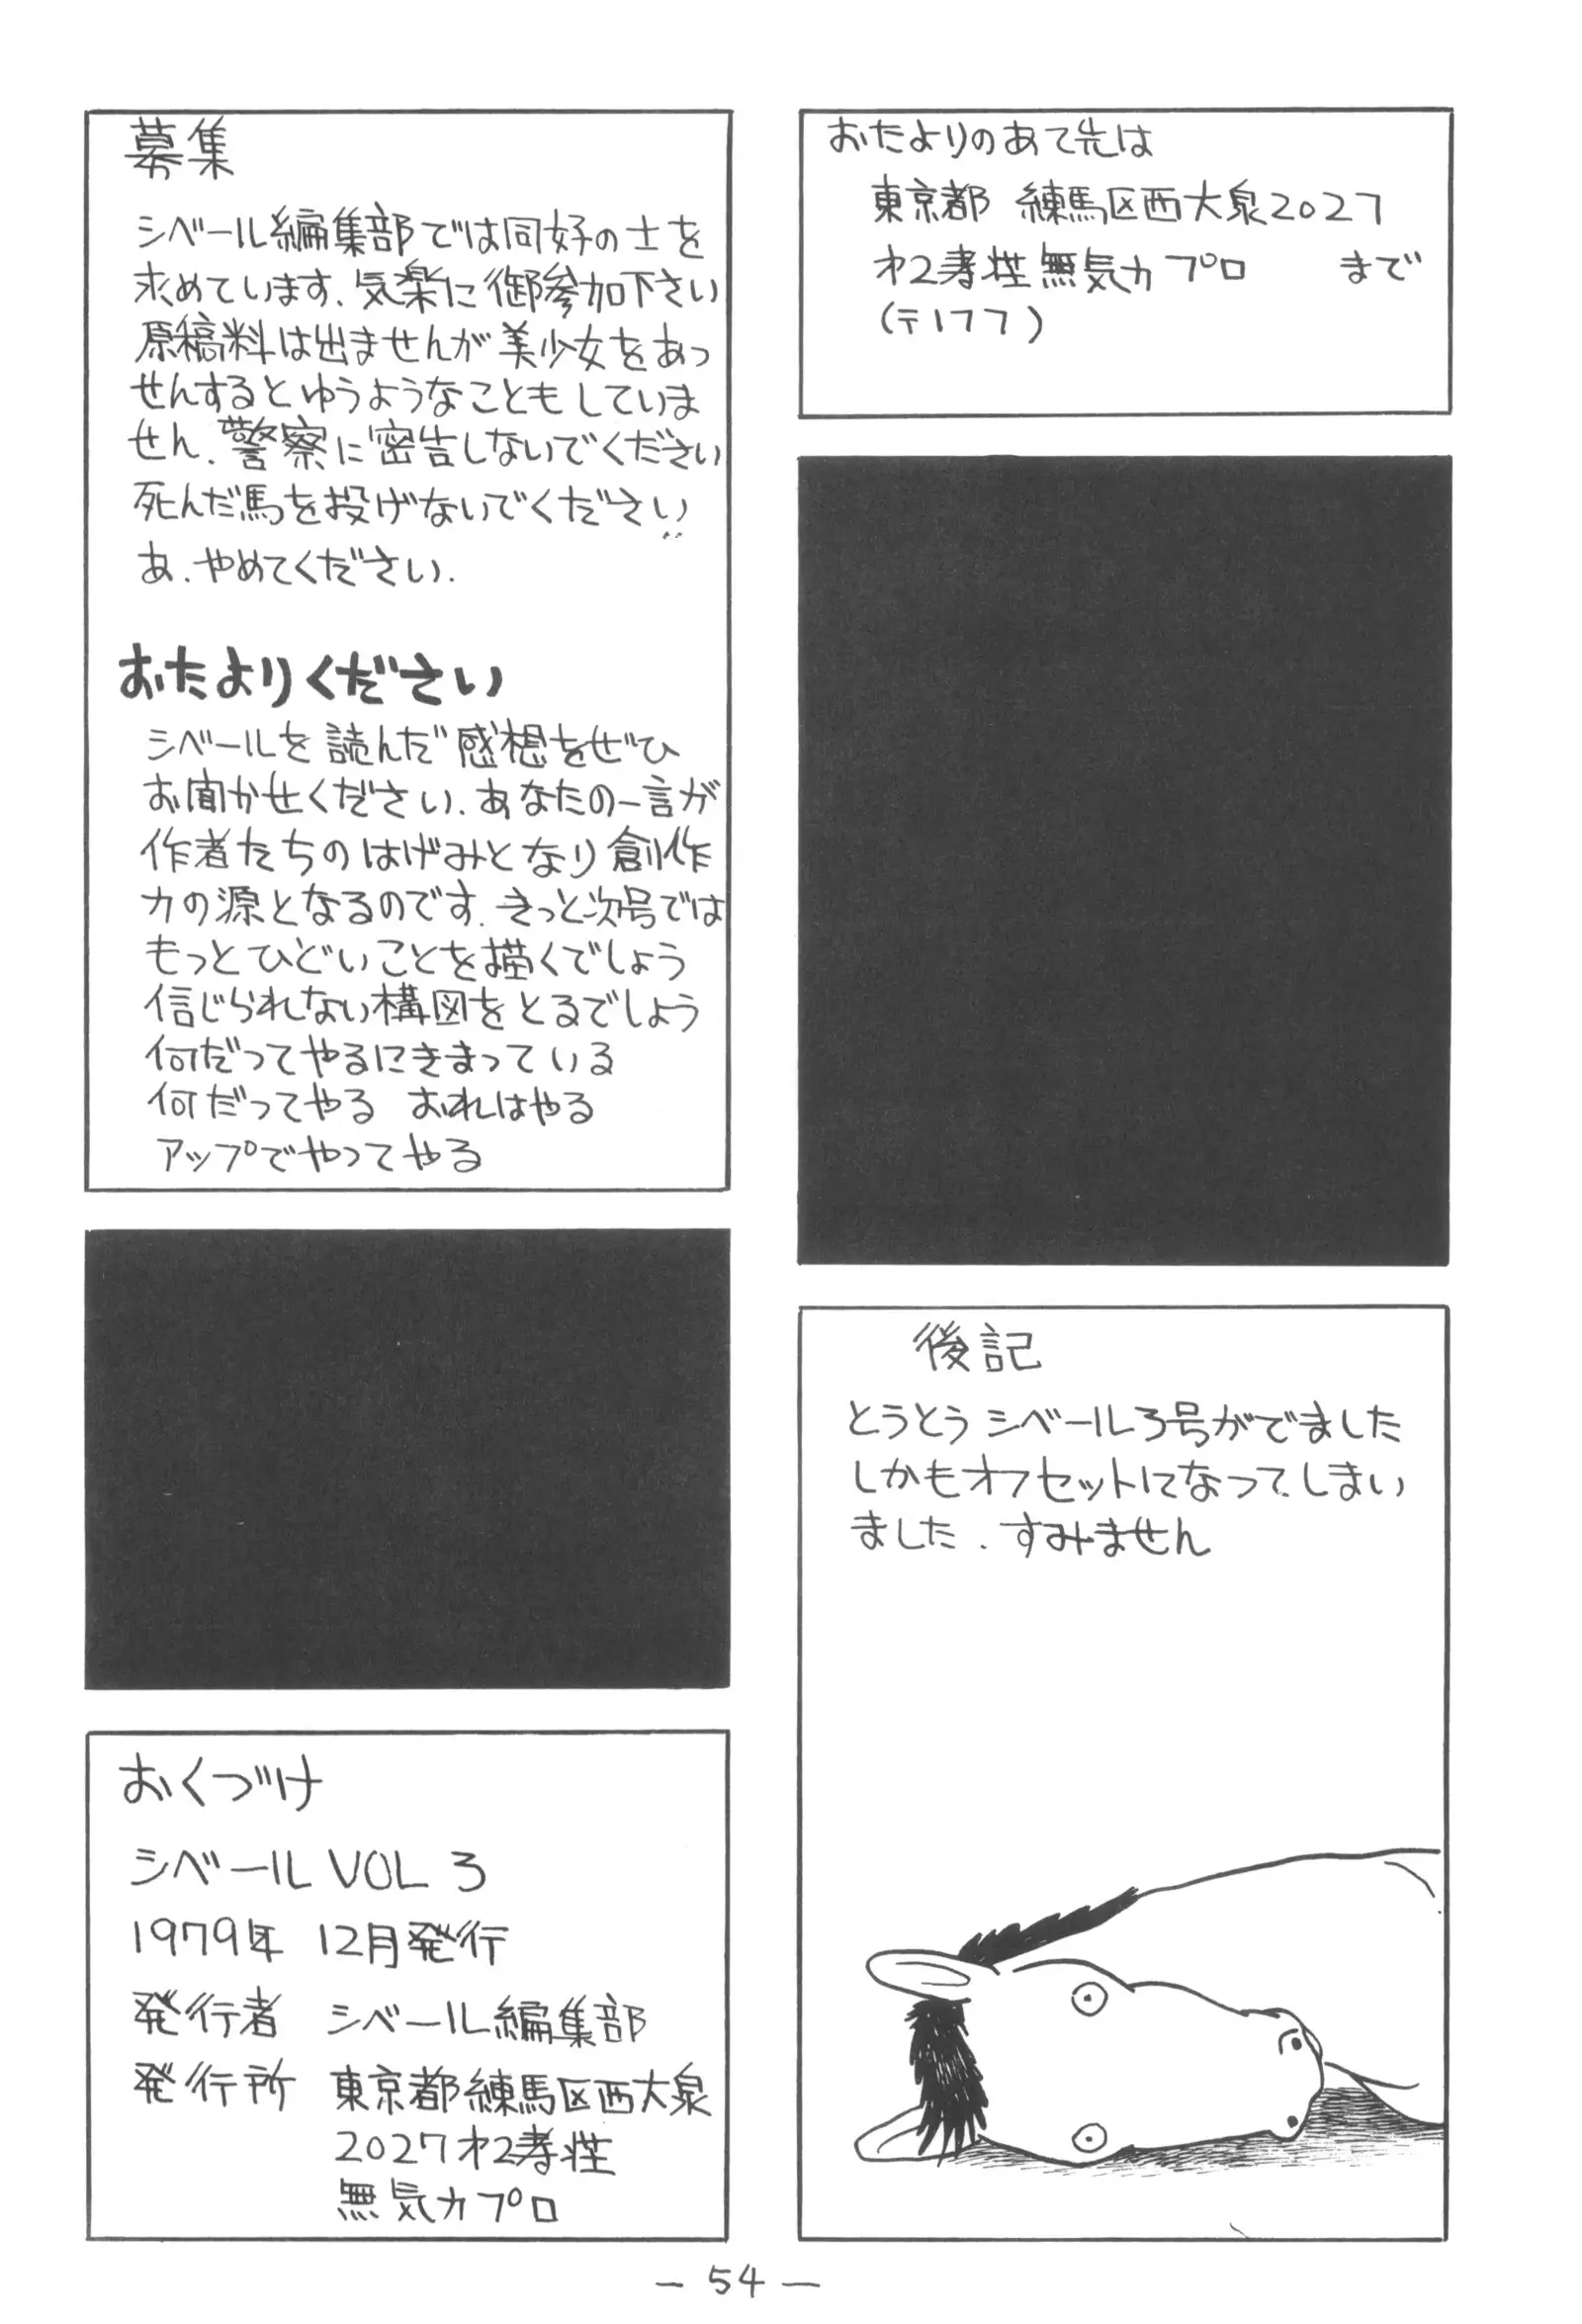 募集
シベール編集部では同好の士を
求めています．気楽に御参加下さい
原稿料は出ませんが美少女をあっ
せんするとゆうようなこともしていま
せん．警察に密告しないでください
死んだ馬を投げないでください
あ．やめてください．
おたよりください
シベールを読んだ感想をぜひ
お聞かせください．あなたの一言が
作者たちのはげみとなり創作
力の源となるのです．きっと次号では
もっとひどいことを描くでしょう
信じられない構図をとるでしょう
何だってやるにきまっている
何だってやる おれはやる
アップでやってやる
おくづけ
シベール VOL 3
1979年 12月発行
発行者 シベール編集部
発行所 東京都練馬区西大泉
2027才2孝荘
無気力プロ
おたよりのあて先は
東京都 練馬区西大泉2027
才2孝荘無気力プロ まで
(〒177)
後記
とうとうシベール3号がでました
しかもオフセットになってしまい
ました．すみません
－54－